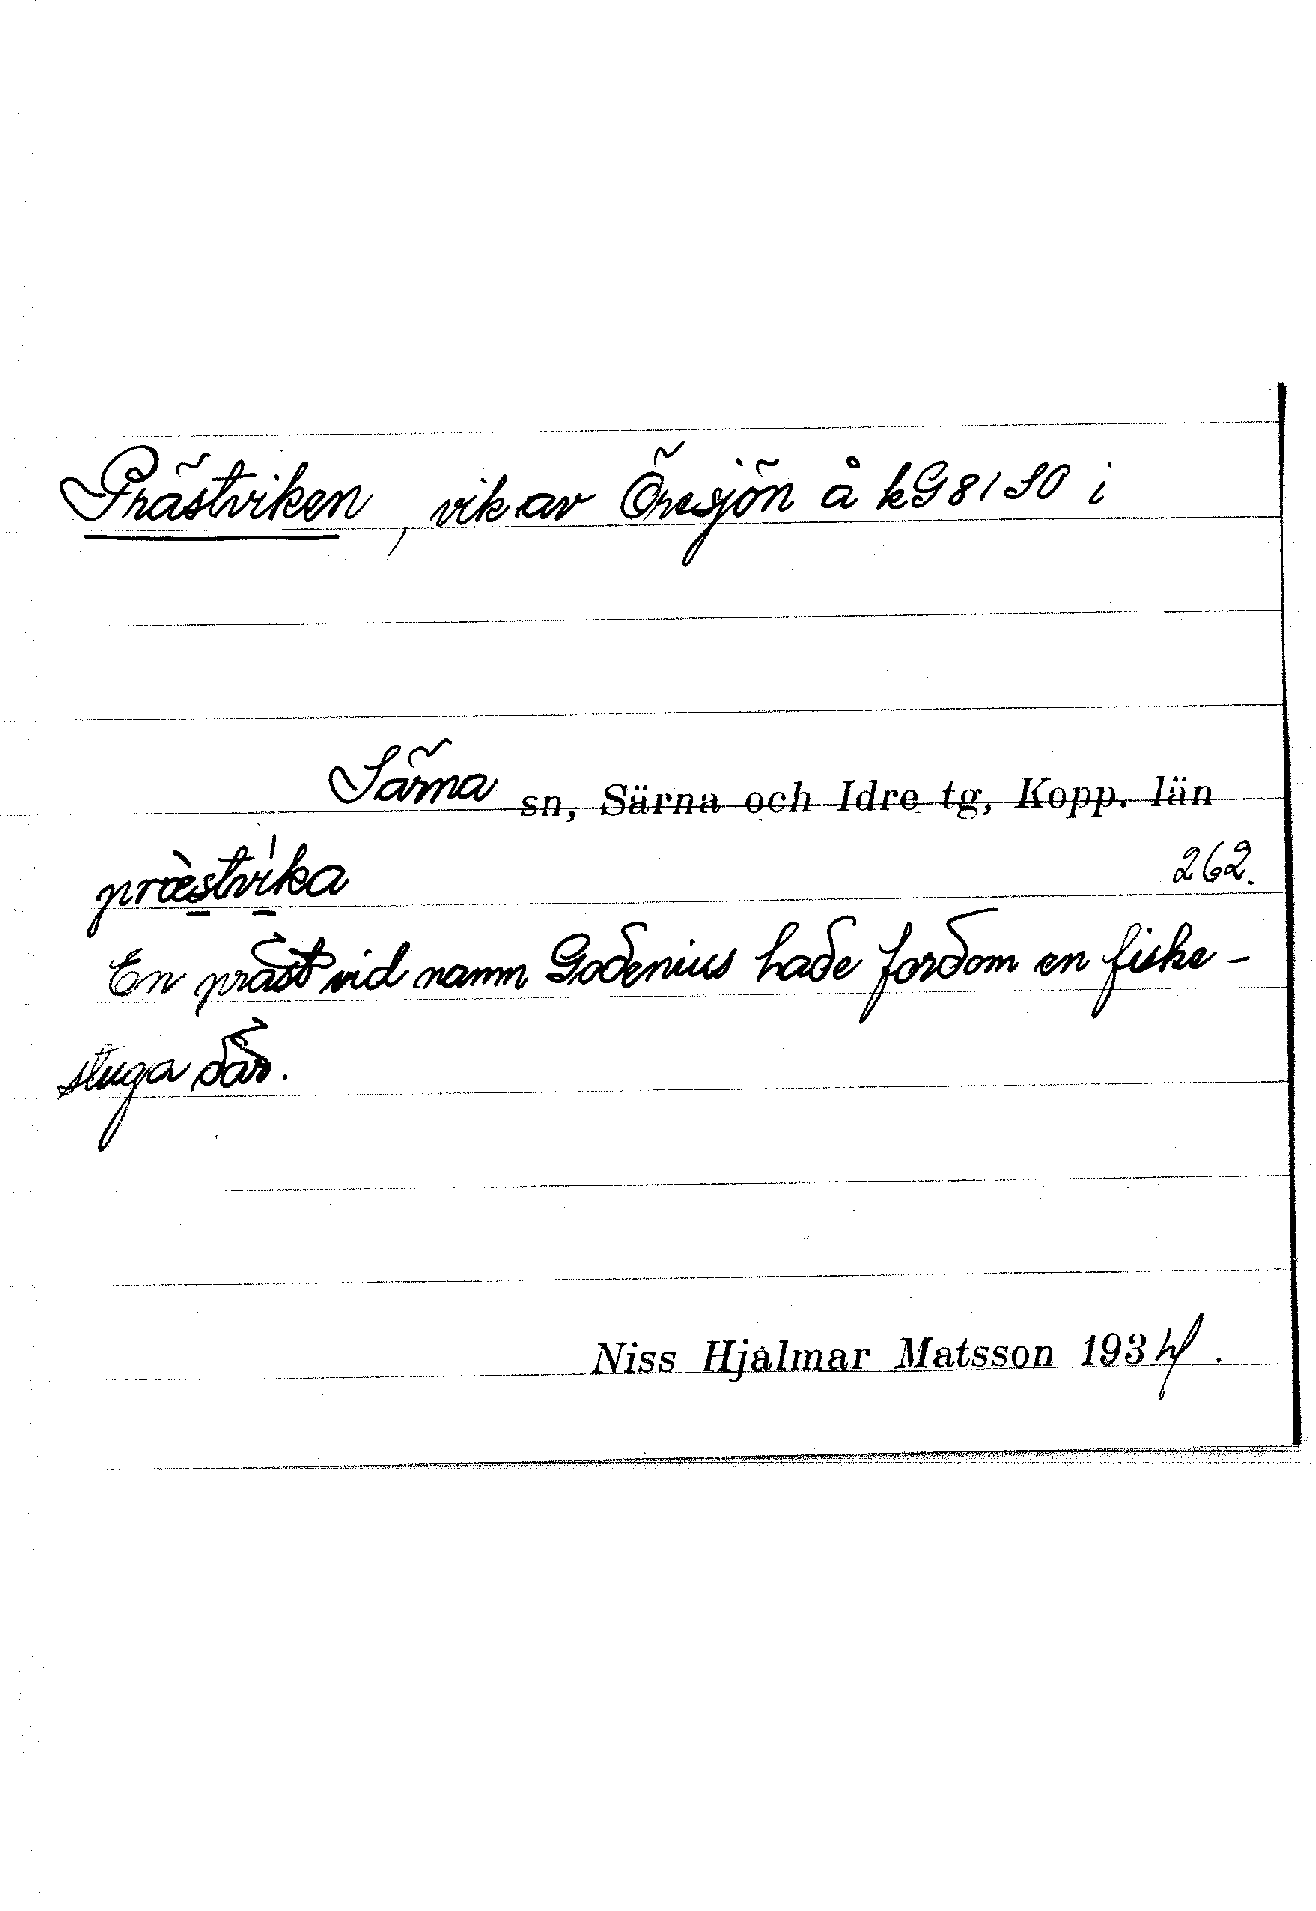 Prästviken, vik av Öresjön å kG 81 SO i
Särna sn, Särna och Idre tg, Kopp. län
præ̀stvi̍ka 262.
En präst vid namn Godenius hade fordom en fiske-
stuga där.
Niss Hjalmar Matsson 1934.